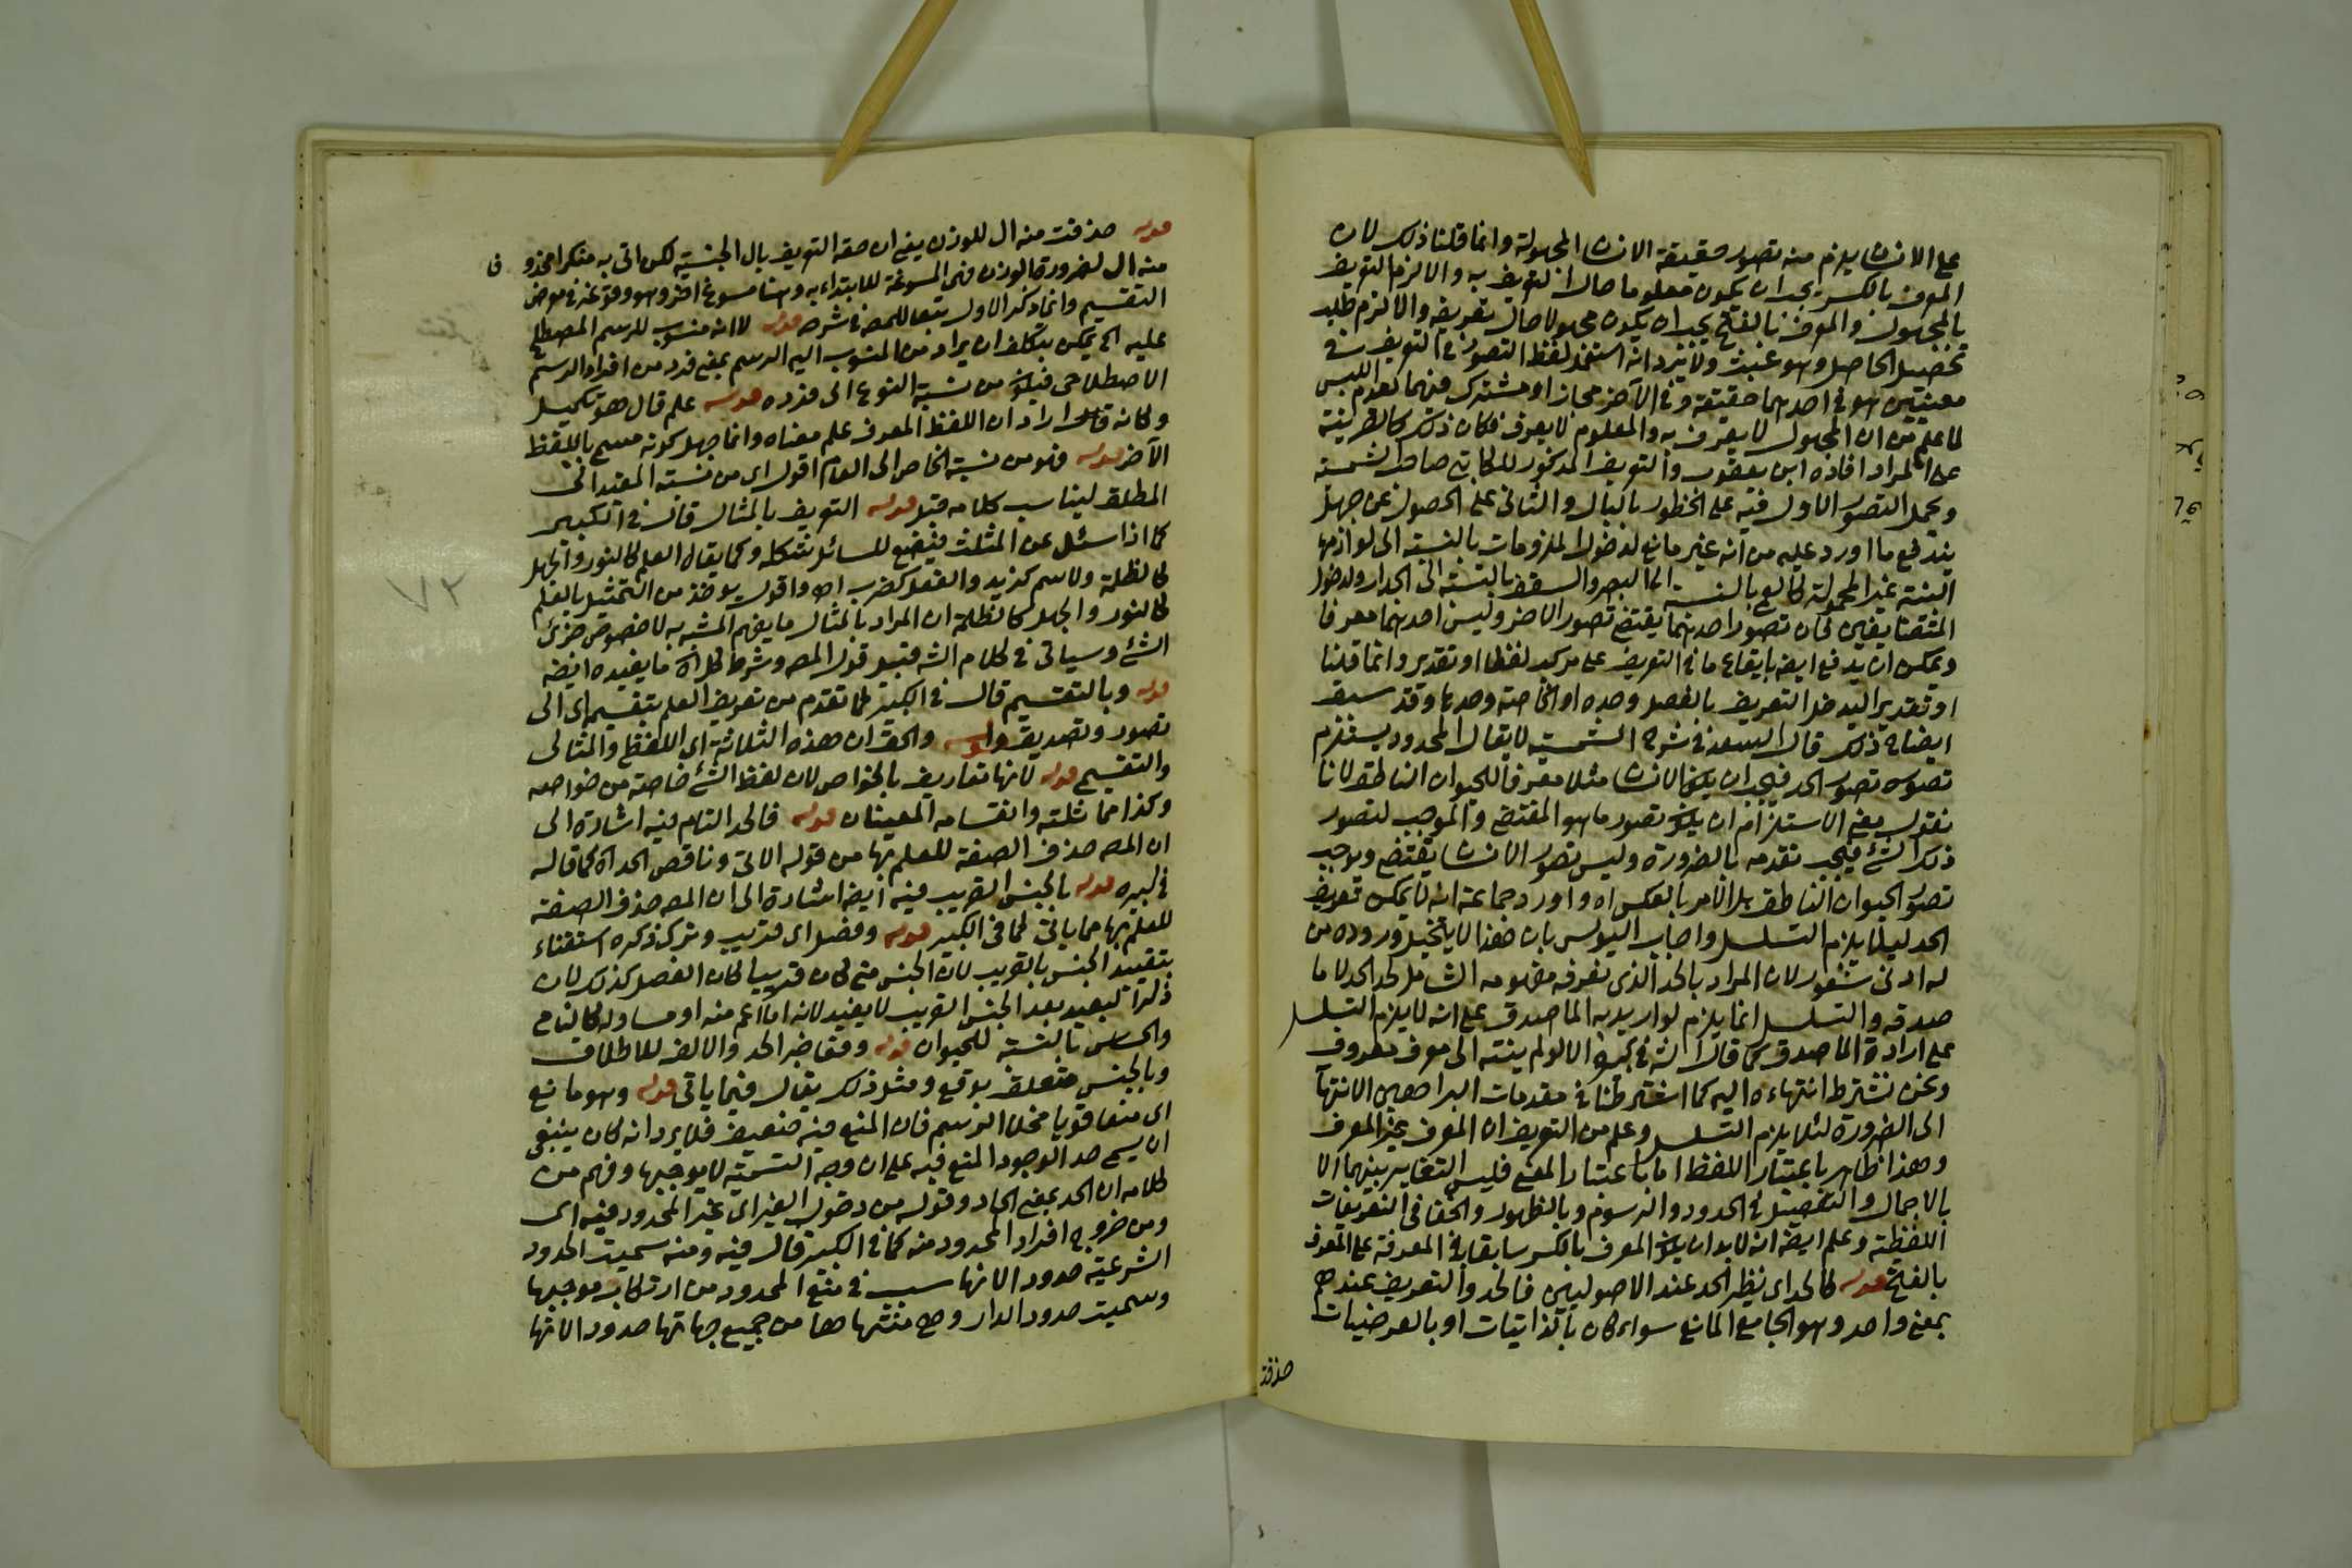 على الانسان يلزم منه تصور حقيقة الانسان المجهولة وانما قلنا ذلك لان
المعرف بالكسر يجب ان يكون معلوما حال التعريف به والا لزم التعريف
بالمجهول والمعرف بالفتح يجب ان يكون مجهولا حال تعريفه والا لزم طلب
تحصيل الحاصل وهو عبث ولا يرد انه استعمل لفظ التصور في التعريف في
معنيين هو في احدهما حقيقة وفي الآخر مجاز او مشترك فيهما لعدم اللبس
لما علم من ان المجهول لا يعرف به والمعلوم لا يعرف فكان ذلك كالقرينة
على المراد افاده ابن يعقوب والتعريف المذكور للكاتبي صاحب الشمسية
ويحمل التصور الاول فيه على الخطور بالبال والثاني على الحصول عن جهل
يندفع ما اورد عليه من انه غير مانع لدخول الملزومات بالنسبة الى لوازمها
البينة غير المحمولة كالعمى بالنسبة الى البصر والسقف بالنسبة الى الجدار ولدخول
المتضايفين لان تصور احدهما يقتضي تصور الاخر وليس احدهما معرفا
ويمكن ان يدفع ايضا بايقاع ما في التعريف على مركب لفظا او تقديرا وانما قلنا
او تقديرا ليدخل التعريف بالفصل وحده او الخاصة وحدها وقد سبق
ايضاح ذلك قال السعد في شرح الشمسية لا يقال المحدود يستلزم
تصوره تصور الحد فيجب ان يكون الانسان مثلا معرفا للحيوان الناطق لانا
نقول معنى الاستلزام ان يكون تصور ما هو المقتضي والموجب لتصور
ذلك الشئ فيجب تقدمه بالضرورة وليس تصور الانسان يقتضي ويوجب
تصور الحيوان الناطق بل الامر بالعكس اه واورد جماعة انه لا يمكن تعريف
الحد لئلا يلزم التسلسل واجاب اليوسي بان هذا لا يتخيل وروده من
له ادنى شعور لان المراد بالحد الذي نعرفه مفهومه الشامل لحد الحد لا ما
صدقه والتسلسل انما يلزم لو اريد به الماصدق على انه لا يلزم التسلسل
على ارادة الماصدق كما قال الش في كبيره الا لو لم ينته الى معرف معروف
ونحن نشترط انتهاءه اليه كما اشترطنا في مقدمات البراهين الانتهآ
الى الضرورة لئلا يلزم التسلسل وعلم من التعريف ان المعرف غير المعرف
وهذا ظاهر باعتبار اللفظ اما باعتبار المعنى فليس التغاير بينهما الا
بالاجمال والتفصيل في الحدود والرسوم وبالظهور والخفا في التعريفات
اللفظية وعلم ايضا انه لا بد ان يكون المعرف بالكسر سابقا في المعرفة على المعرف
بالفتح قوله كالحد اي نظير الحد عند الاصوليين فالحد والتعريف عندهم
بمعنى واحد وهو الجامع المانع سواء كان بالذاتيات او بالعرضيات
حذفت
قوله حذفت منه ال للوزن يعني ان حقه التعريف بال الجنسية لكن اتى به منكرا محذو
فا
منه ال لضرورة الوزن فهي المسوغة للابتداء به وهنا مسوغ اخر وهو وقوعه في معرض
التقسيم وانما ذكر الاول تبعا للمص في شرحه قوله لا انه منسوب للرسم المصطلح
عليه الخ يمكن بتكلف ان يراد من المنسوب اليه الرسم بمعنى فرد من افراد الرسم
الاصطلاحي فيكون من نسبة النوع الى فرده قوله علم قال هو تكميل
وكانه قال اراد ان اللفظ المعرف علم معناه وانما جهل كونه مسمى باللفظ
الآخر قوله فهو من نسبة الخاص الى العام اقول اي من نسبة المقيد الى
المطلق ليناسب كلامه قبل قوله التعريف بالمثال قال في الكبير
كما اذا سئل عن المثلث فيضع للسائل شكله وكما يقال العلم كالنور والجهل
كالظلمة والاسم كزيد والفعل كضرب اه واقول يؤخذ من التمثيل بالعلم
كالنور والجهل كالظلمة ان المراد بالمثال ما يفهم المشبه به لا خصوص جزئي
الشئ وسياتي في كلام الش قبيل قول المص وشرط كل اه ما يفيده ايضا
قوله وبالتقسيم قال في الكبير لما تقدم من تعريف العلم بتقسيمه اي الى
تصور وتصديق قوله والحق ان هذه الثلاثة اي اللفظ والمثال
والتقسيم قوله لانها تعاريف بالخواص لان لفظ الشئ خاصة من خواصه
وكذا مماثلته وانقسامه المعينان قوله فالحد التام فيه اشارة الى
ان المص حذف الصفة للعلم بها من قوله الاتي وناقص الحد اه كما قاله
في كبيره قوله بالجنس القريب فيه ايضا اشارة الى ان المص حذف الصفة
للعلم بها مما ياتي كما في الكبير قوله وفصل اي قريب وترك ذكره استغناء
بتقييد الجنس بالقريب لان الجنس متى كان قريبا كان الفصل كذلك لان
ذكر البعيد بعد الجنس القريب لا يفيد لانه اما اعم منه او مساو له كالنامي
والحساس بالنسبة للحيوان قوله وفقا خبر الحد والالف للاطلاق
وبالجنس متعلق بوقع ومثل ذلك يقال فيما ياتي قوله وهو مانع
اي منعا قويا بخلاف الرسم فان المنع فيه ضعيف فلا يرد انه كان ينبغي
ان يسمى حدا لوجود المنع فيه على ان وجه التسمية لا يوجبها وفهم من
كلامه ان الحد بمعنى الحاد وقوله من دخول الغير اي غير المحدود فيه اي
ومن خروج افراد المحدود منه كما في الكبير قال فيه ومنه سميت الحدود
الشرعية حدودا لانها سبب في منع المحدود من ارتكاب موجبها
وسميت حدود الدار وهي منتهاها من جميع جهاتها حدودا لانها
٧٣